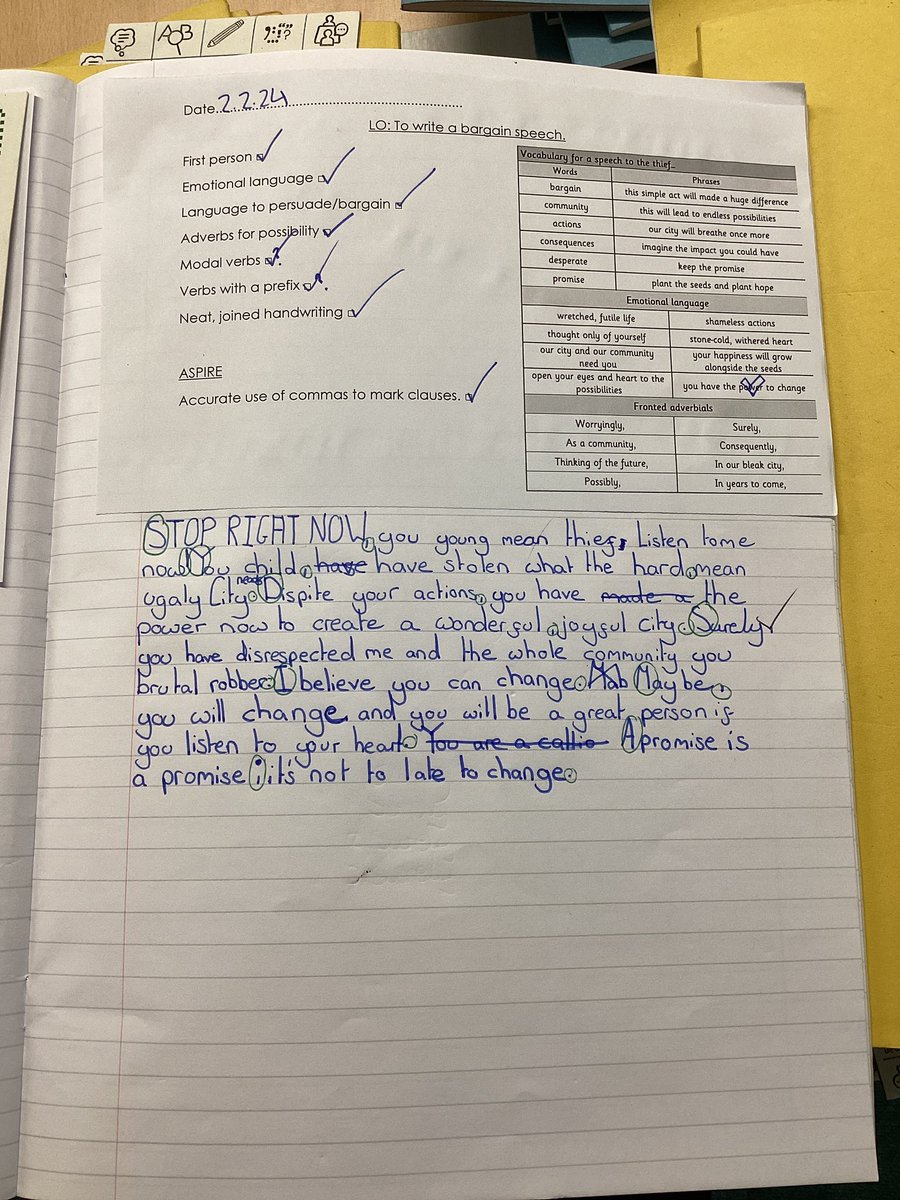 Date..2.2.24..............................
LO: To write a bargain speech.
First person
Emotional language
Language to persuade/bargain
Adverbs for possibility
Modal verbs
Verbs with a prefix
Neat, joined handwriting
ASPIRE
Accurate use of commas to mark clauses.
Vocabulary for a speech to the thief...
Words Phrases
bargain this simple act will made a huge difference
community this will lead to endless possibilities
actions our city will breathe once more
consequences imagine the impact you could have
desperate keep the promise
promise plant the seeds and plant hope
Emotional language
wretched, futile life shameless actions
thought only of yourself stone-cold, withered heart
our city and our community need you your happiness will grow alongside the seeds
open your eyes and heart to the possibilities you have the power to change
Fronted adverbials
Worryingly, Surely,
As a community, Consequently,
Thinking of the future, In our bleak city,
Possibly, In years to come,
STOP RIGHT NOW, you young mean thief, Listen to me
now! You child, have have stolen what the hard, mean
ugaly City needs. Dispite your actions, you have made a the
power now to create a wonderful, joyful city. Surely
you have disrespected me and the whole community, you
brutal robber. I believe you can change. Maybe,
you will change and you will be a great person if
you listen to your heart. You are a A promise is
a promise; it's not to late to change.